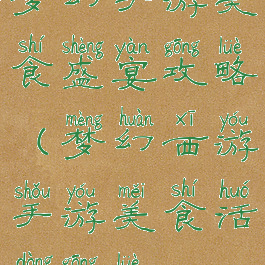 梦幻手游美
shí shèng yàn gōng lüè
食盛宴攻略
mèng huàn xī yóu
（梦幻西游
shǒu yóu měi shí huó
手游美食活
dòng gōng lüè